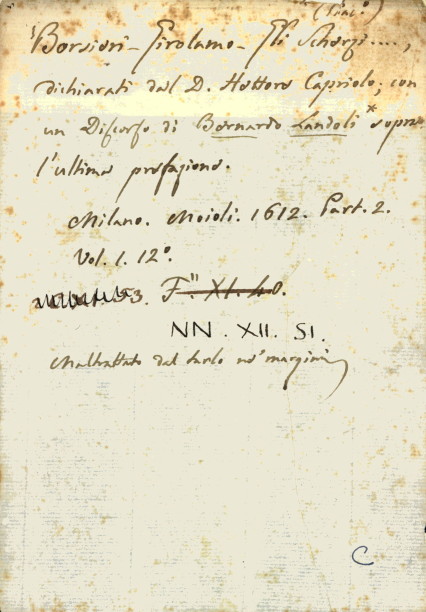 Borsieri - Girolamo - Gli Scherzi....,
dichiarati dal D. Hettore Capriolo; con
un Discorso di Bernardo Landoli * sopra
l'ultima prefazione.
Milano. Moioli. 1612. Part. 2.
Vol. 1. 12°.
53. F" XI. 40.
NN. XII. 51.
Maltrattato dal tarlo ne' margini
C